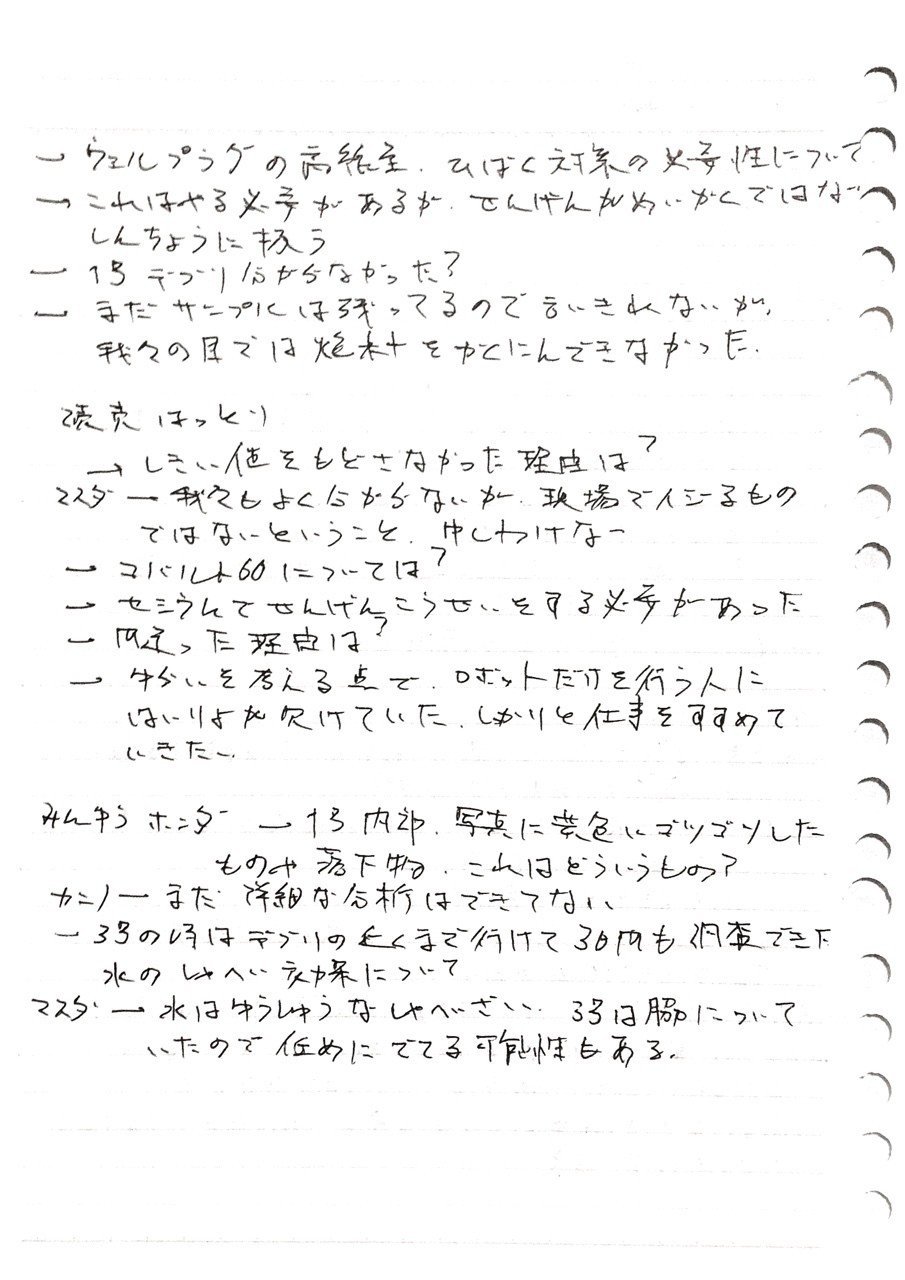 → ウェルプラグの高線量、ひばく対策の必要性について
→ これはやる必要があるが、せんげんがめいかくではない
しんちょうに扱う
→ 1号 デブリ分からなかった?
→ まだサンプルは残ってるので言いきれないが、
我々の目では燃料をかくにんできなかった。
読売 はっとり
→ しきい値をもどさなかった理由は?
マスダ → 我々もよく分からないが、現場でイジるもの
ではないということ、申しわけない
→ コバルト60については?
→ セシウムでせんげんこうせいをする必要があった
→ 間違った理由は?
→ を考える点で、ロボットだけを行う人に
はいりょが欠けていた、しかりと仕事をすすめて
いきたい
みんゆう ホンダ → 1号内部、写真に黄色いゴツゴツした
ものや落下物、これはどういうもの?
カンノ → まだ詳細な分析はできてない
→ 3号の時はデブリの近くまで行けて30円も調査できた
水のしゃへい効果について
マスダ → 水はゆうしゅうなしゃへいざい、3号は脇について
いたので低めにでてる可能性もある。